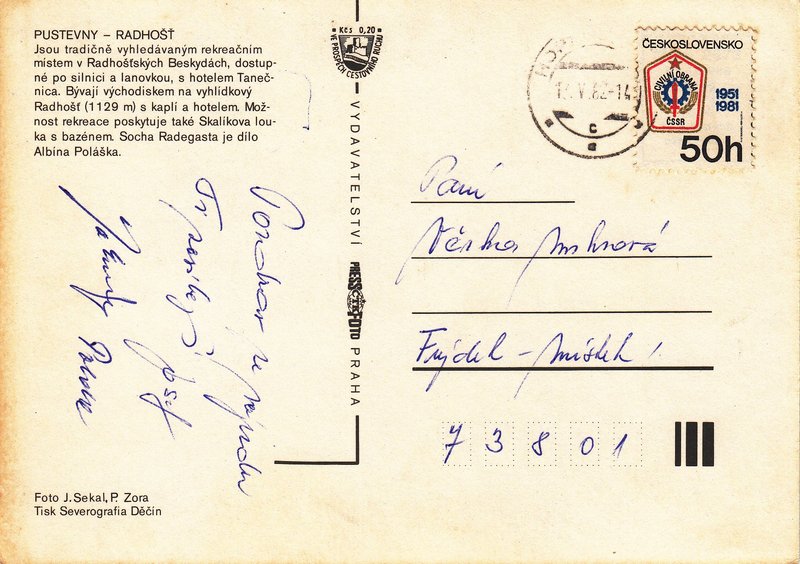 PUSTEVNY – RADHOŠŤ
Jsou tradičně vyhledávaným rekreačním
místem v Radhošťských Beskydách, dostup-
né po silnici a lanovkou, s hotelem Taneč-
nica. Bývají východiskem na vyhlídkový
Radhošť (1129 m) s kaplí a hotelem. Mož-
nost rekreace poskytuje také Skalíkova lou-
ka s bazénem. Socha Radegasta je dílo
Albína Poláška.
Pozdrav ze zájezdu
Ti posílají
Foto J. Sekal, P. Zora
Tisk Severografia Děčín
Kčs 0,20
VE PROSPĚCH CESTOVNÍHO RUCHU
VYDAVATELSTVÍ PRESSFOTO PRAHA
ČTK
ČESKOSLOVENSKO
CIVILNÍ OBRANA
ČSSR
1951
1981
50h
V. 82-14
c
a
Paní
Věrka
Frýdek - Místek
73801